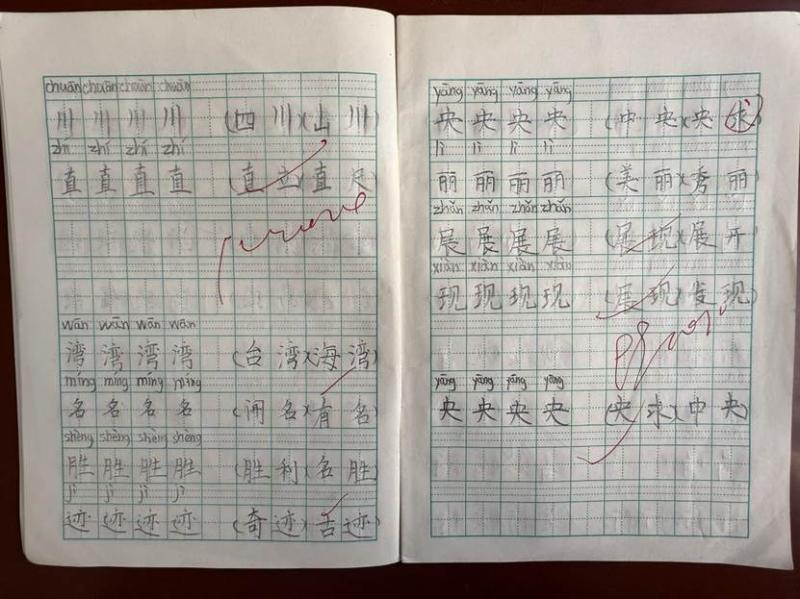 chuān chuān chuān chuān
川 川 川 川 (四川)(山川)
zhí zhí zhí zhí
直 直 直 直 (直立)(直尺)
wān wān wān wān
湾 湾 湾 湾 (台湾)(海湾)
míng míng míng míng
名 名 名 名 (闻名)(有名)
shèng shèng shèng shèng
胜 胜 胜 胜 (胜利)(名胜)
jì jì jì jì
迹 迹 迹 迹 (奇迹)(古迹)
yāng yāng yāng yāng
央 央 央 央 (中央)(央求)
lì lì lì lì
丽 丽 丽 丽 (美丽)(秀丽)
zhǎn zhǎn zhǎn zhǎn
展 展 展 展 (展现)(展开)
xiàn xiàn xiàn xiàn
现 现 现 现 (展现)(发现)
yāng yāng yāng yāng
央 央 央 央 (央求)(中央)